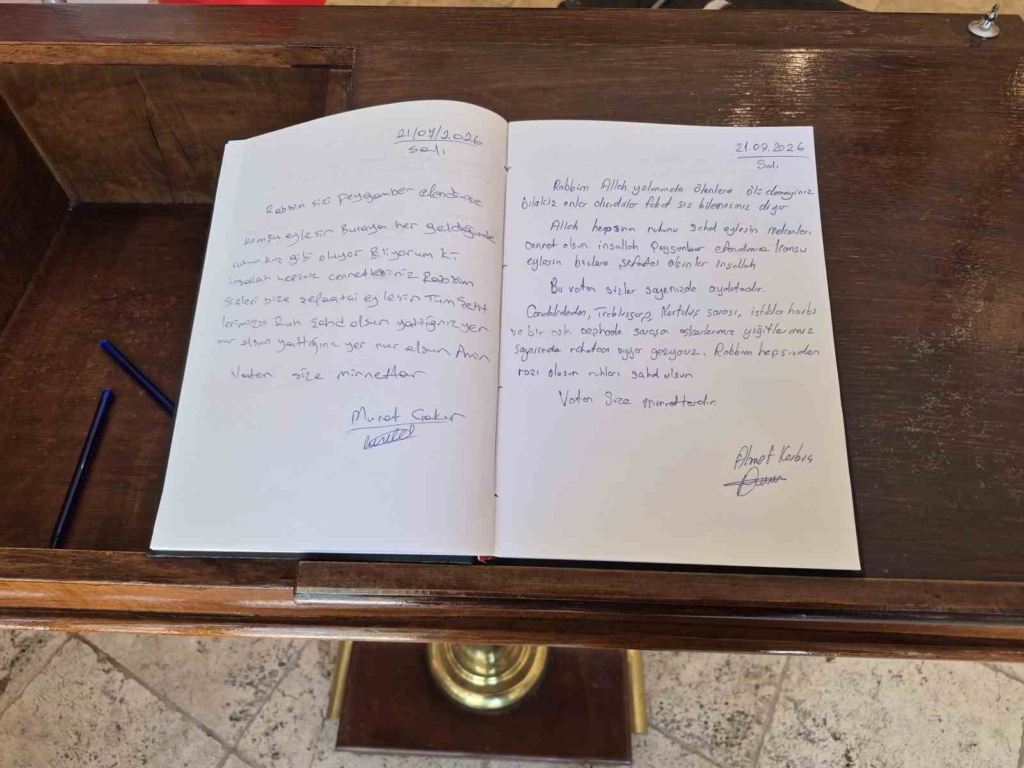 21/07/2026
Salı
Rabbim sizi Peygamber efendimize
komsu eylesin Buraya her geldiğimde
ruhum kuz gibi oluyor Biliyorum ki
insallah heriniz cennetlesiniz Rabbim
sizleri bize sefaatai eylesin Tüm Sehit
lerimizin Ruh Sahd olsun yattiginiz yer
nur olsun yattiginiz yer nur olsun Amin
Vatan size minnettar
Murat
21.07.2026
Salı
Rabbim Allah yolununda ölenlere ölü demeyiniz
bilakiz onlar diridirler fakat siz bilemesiniz diyor
Allah hepsinin ruhunu Sahd eylesin mekanları
cennet olsun insallah Peygamber efendimize konsu
eylesin bizlere sefaatai olsunlar insallah
Bu vatan sizler sayenizde ayaktadır.
Canakkaleden, Trablusgarp, Kurtuluş savası, istiklar harbi
ve bir cok cephade savaşan askerlerimiz yiğitlerimiz
sayesinde rahatca geziyoruz. Rabbim hepsinden
razı olusun ruhları sahd olsun
Vatan Size minnettardır.
Ahmet